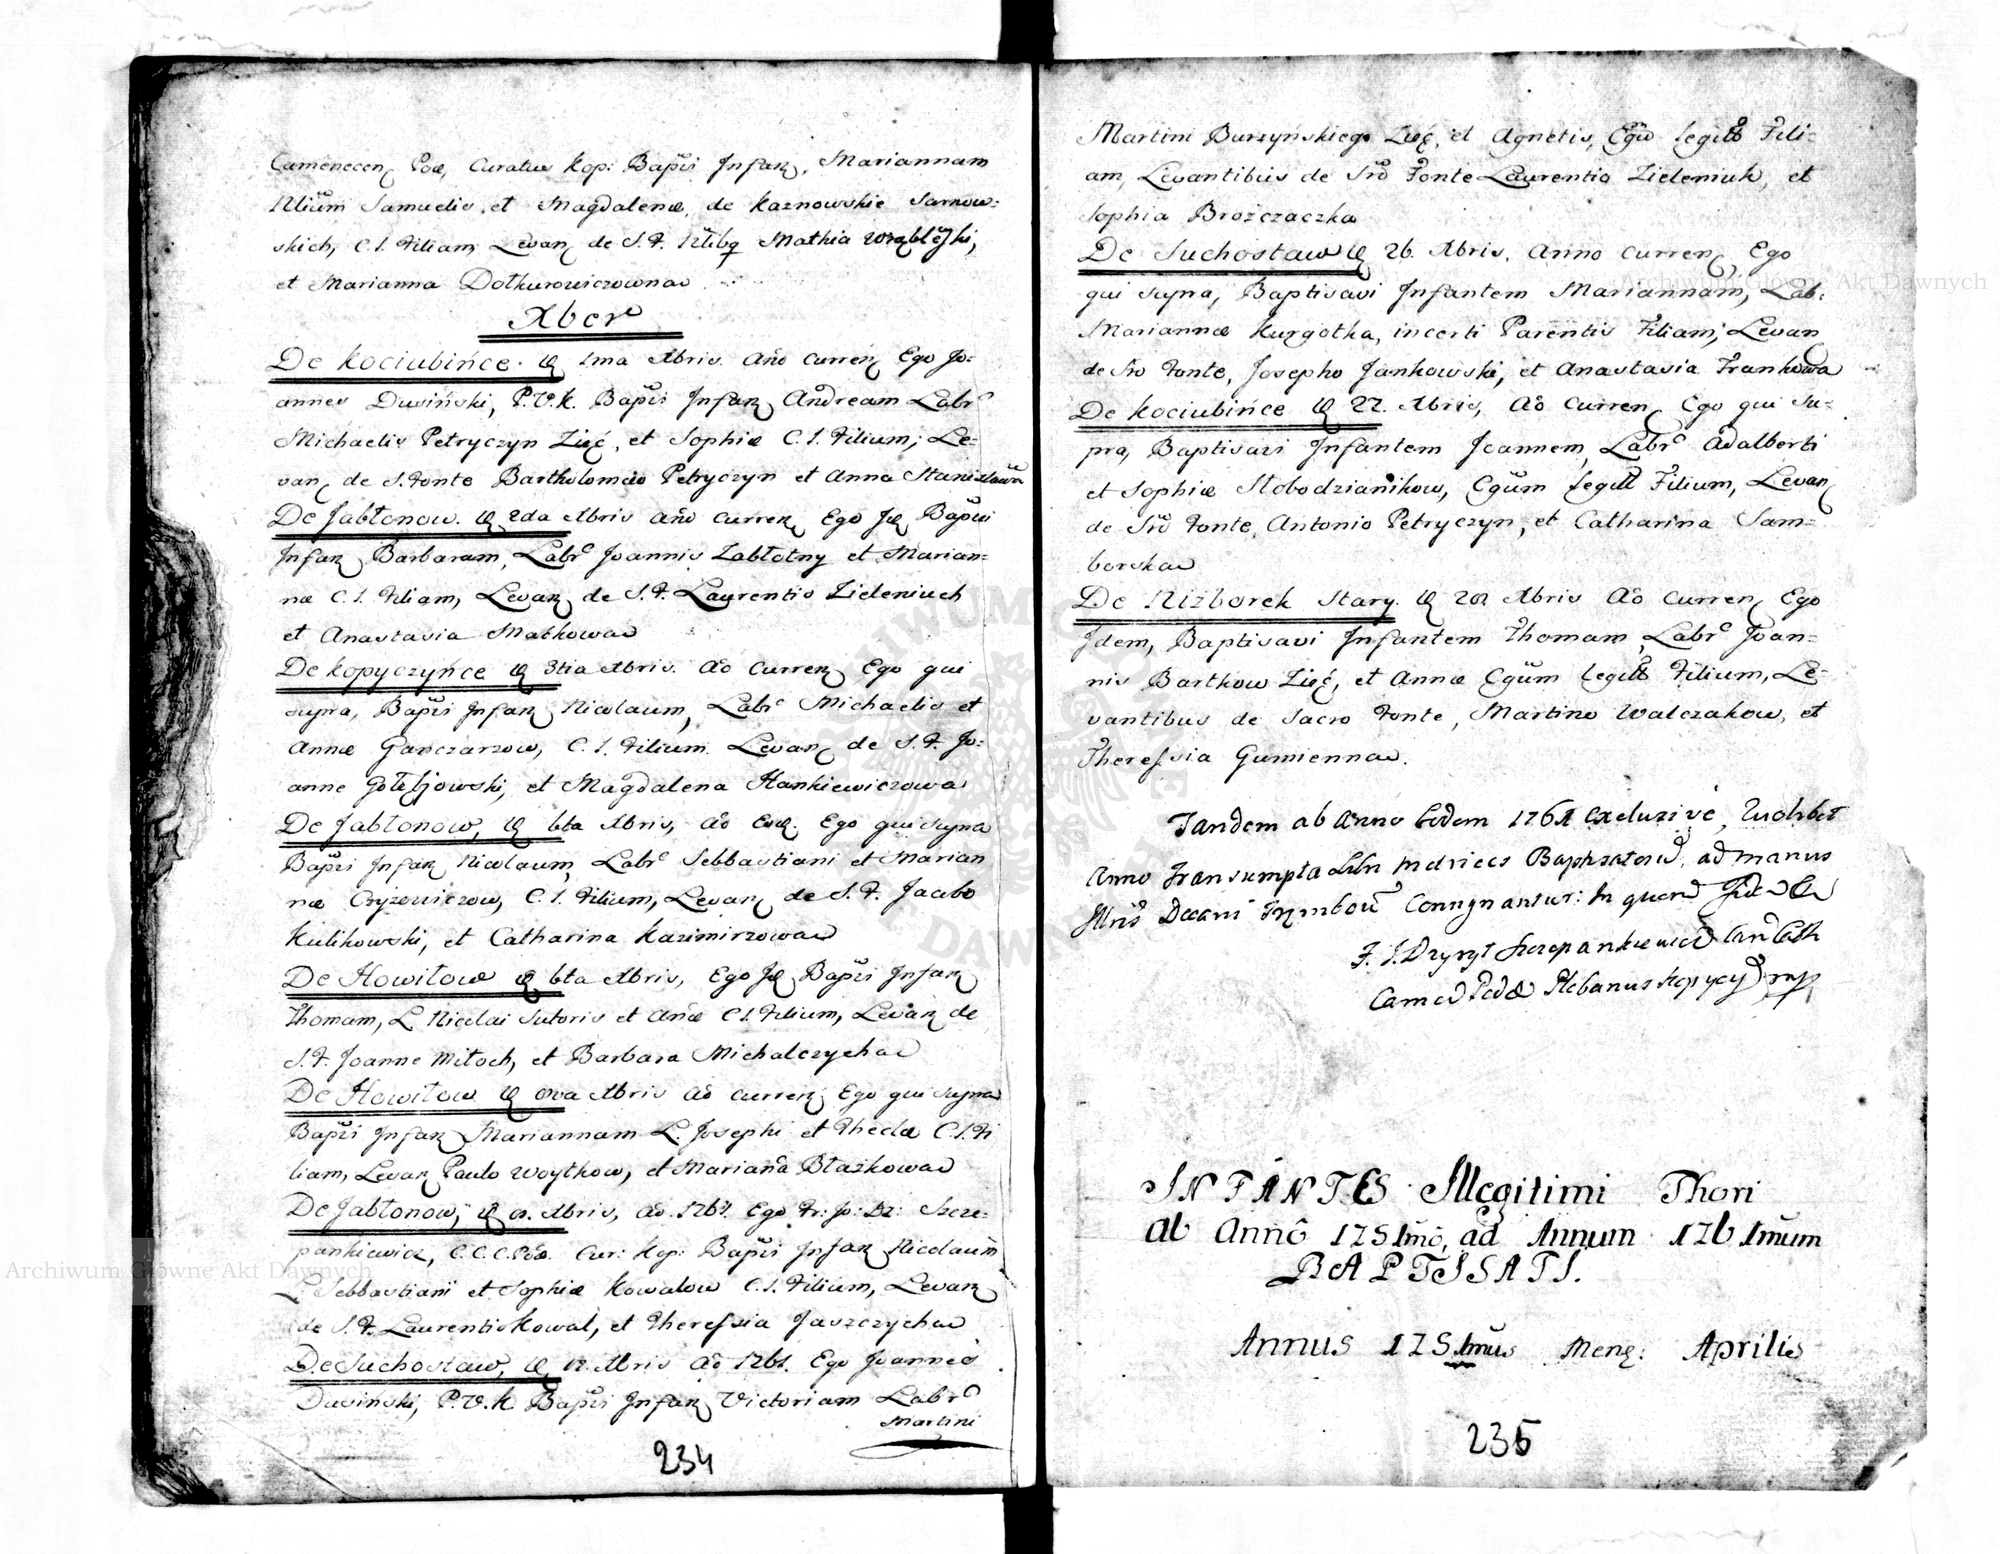 Camenecen Poæ, Curatus Kop: Bapsi Infan, Mariannam
Filium Samuelis, et Magdalenæ, de Kaznowskie Sarnow=
skich, C. L. Filiam, Levan de S. F. Mathia Wrąblęski,
et Marianna Dołkurowiczowna
Xber
De Kociubińce. 1ma Xbris. Año Curren Ego Jo=
annes Dusiński, P. V. K. Bapsi Infan Andream Labr
Michaelis Petryczyn Zięć, et Sophiæ C. L. Filium; Le=
van de S. Fonte Bartholomæo Petryczyn et Anna Stanisława
De Jabłonow. 2da Xbris Año Curren Ego Bapsi
Infan Barbaram, Labr Joannis Zabłotny et Marian=
næ C. L. Filiam, Levan de S. F. Laurentio Zieleniuch
et Anastasia Małkowa
De Kopyczyńce 3tia Xbris. Aō Curren Ego qui
supra, Bapsi Infan Nicolaum, Labr Michaelis et
Annæ Ganczarzow, C. L. Filium. Levan de S. F. Jo=
anne Gołębjowski, et Magdalena Hankiewiczowa
De Jabłonow, 6ta Xbris, Aō Ego qui supra
Bapsi Infan Nicolaum, Labr Sebbastiani et Marian
næ Czyżewiczow, C. L. Filium, Levan de S. F. Jacobo
Kulikowski, et Catharina Kazimirzowa
De Howiłow 6ta Xbris, Ego Bapsi Infan
Thomam, L. Nicolai Sutoris et Añæ C. L. Filium, Levan de
S. F. Joanne Miłoch, et Barbara Michalczycha
De Howiłow Xbris Aō Curren Ego qui supra
Bapsi Infan Mariannam L. Josephi et Theclæ C. L. Fi
liam, Levan Paulo Woytkow, et Mariaña Błażkowa
De Jabłonow, Xbris, Aō. 1761. Ego Fr: Jo: Szcze=
pankiewicz, C. C. C. Poæ. Cur: Kop: Bapsi Infan Nicolaum
L. Sebbastiani et Sophiæ Kowalow C. L. Filium, Levan
de S. F. Laurentio Kowal, et Theressia Jaszczycha
De Suchostaw, Xbris Aō 1761. Ego Joannes
Dusiński, P. V. K. Bapsi Infan Victoriam Labr
Martini
234
Martini Burzyńskiego Zięć, et Agnetis, Cgū legitt Fili=
am, Levantibus de Srō Fonte Laurentio Zieleniuk, et
Sophia Brożczaczka
De Suchostaw 26. Xbris. Anno Curren, Ego
qui supra, Baptisavi Infantem Mariannam, Lab:
Mariannæ Kurgotka, incerti Parentis Filiam, Levan
de Sro Fonte, Josepho Jankowski, et Anastasia Frankowa
De Kociubińce 27. Xbris, Aō Curren Ego qui su=
pra, Baptisavi Infantem Joannem, Labr Adalberti
et Sophiæ Słobodzianikow, Cgūm legitt Filium, Levan
de Srō Fonte, Antonio Petryczyn, et Catharina Sam=
borska
De Niżborek Stary. Xbris Aō Curren Ego
Idem, Baptisavi Infantem Thomam, Labr Joan=
nis Bartkow Zięć, et Annæ Cgūm legitt Filium, Le=
vantibus de Sacro Fonte, Martino Walczakow, et
Theressia Gumienna.
Tandem ab Anno Eodem 1761 exclusive,
Anno Transumpta Libri metrices ad manus
Decani Connignantur: In quorum Fidem
Szczepankiewicz
Camen Plebanus Kopycz mp
INFANTES Illegitimi Thori
ab Annô 1751mô, ad Annum 1761mum
BAPTISATI.
Annus 1751mus Mens: Aprilis
235
Archiwum Główne Akt Dawnych
Archiwum Główne Akt Dawnych
ARCHIWUM GŁÓWNE AKT DAWNYCH